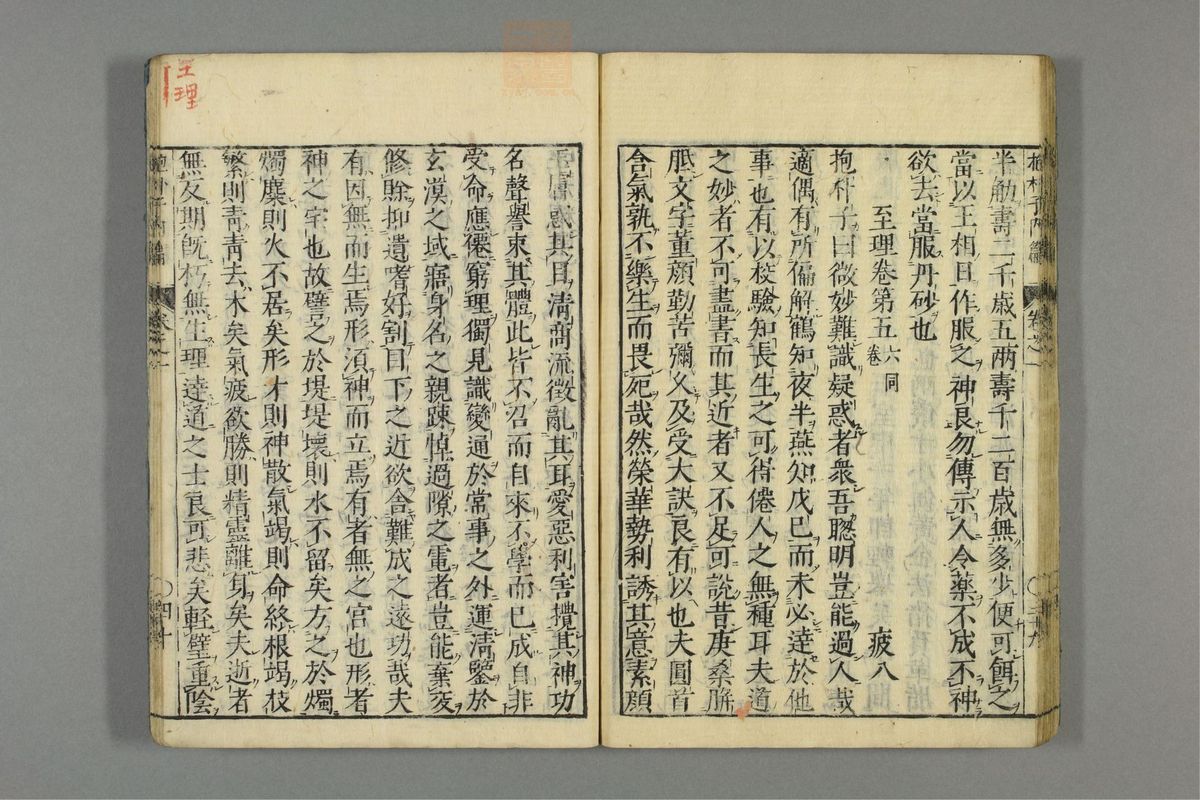 半觔壽二千歲五兩壽千二百歲無多少便可餌之
當以王相日作服之神良勿傳示人令藥不成不神
欲去當服丹砂也
至理卷第五 六卷同 疲八
抱朴子曰微妙難識疑惑者衆吾聰明豈能過人哉
適偶有所偏解鶴知夜半燕知戊巳而未必達於他
事也有以校驗知長生之可得僊人之無種耳夫道
之妙者不可盡書而其近者又不足可說昔庚桑胼
胝文字董顏勤苦彌久及受大訣良有以也夫圓首
含氣孰不樂生而畏死哉然榮華勢利誘其意素顏
玉膚惑其目清商流徵亂其耳愛惡利害攪其神功
名聲譽束其體此皆不召而自來不學而已成自非
受命應僊窮理獨見識變通於常事之外運清鑒於
玄漠之域寤身名之親踈悼過隙之電者豈能棄交
修賒抑遺嗜好割目下之近欲舍難成之遠功哉夫
有因無而生焉形湏神而立焉有者無之宮也形者
神之宅也故譬之於堤堤壞則水不留矣方之於燭
燭麋則火不居矣形才則神散氣竭則命終根竭枝
繁則青青去木矣氣疲欲勝則精靈離身矣夫逝者
無反期既朽無生理達道之士良可悲矣軽璧重陰
至理